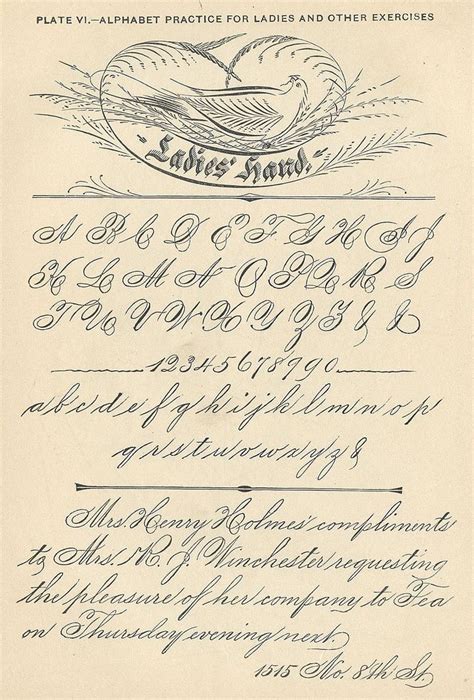 PLATE VI.—ALPHABET PRACTICE FOR LADIES AND OTHER EXERCISES
Ladies' Hand.
A B C D E F G H I J
K L M N O P Q R S
T U V W X Y Z & &
1234567890
a b c d e f g h i j k l m n o p
q r s t u v w x y z &
Mrs Henry Holmes' compliments
to Mrs. R. J. Winchester requesting
the pleasure of her company to Tea
on Thursday evening next.
1515 No. 8th St.